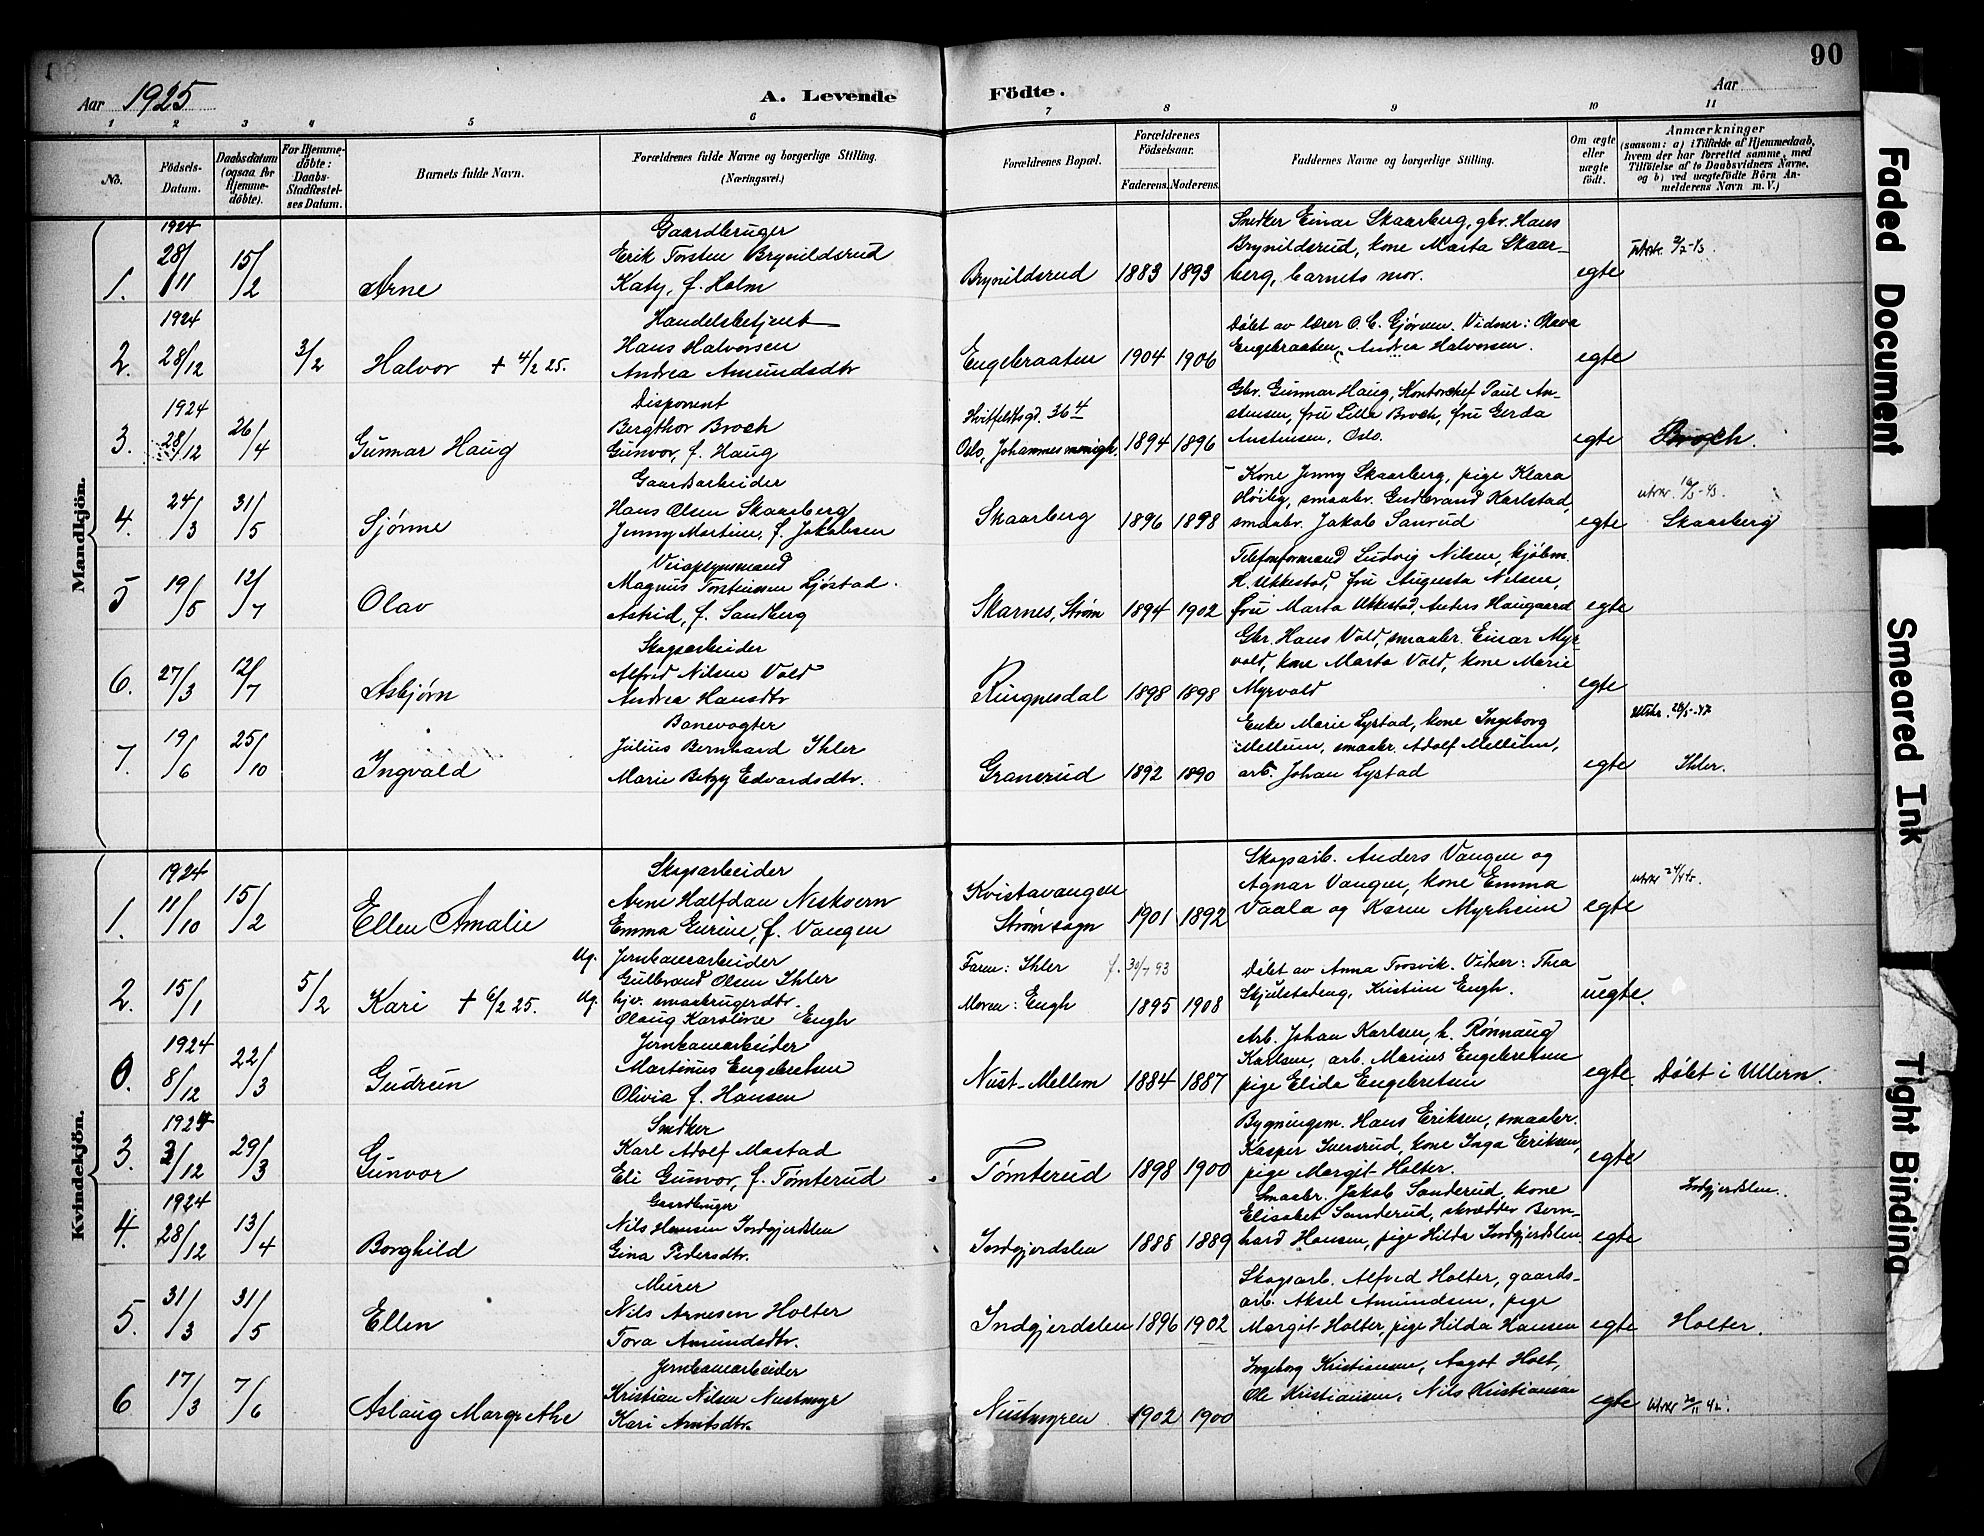 90
Aar 1925
A. Levende Födte.
Aar
1 2 3 4 5 6 7 8 9 10 11
No.
Födsels-Datum.
Daabsdatum (ogsaa for Hjemmedöbte).
For Hjemmedöbte: Daabs-Stadfæstelses Datum.
Barnets fulde Navn.
Forældrenes fulde Navne og borgerlige Stilling.
(Næringsvei.)
Forældrenes Bopæl.
Forældrenes Födselsaar.
Faderens. Moderens.
Faddernes Navne og borgerlige Stilling.
Om ægte eller uægte födt.
Anmærkninger
(saasom: a) i Tilfælde af Hjemmedaab, hvem der har forrettet samme, med Tilföielse af to Daabsvidners Navne, og b) ved uægtefödte Börn Anmelderens Navn m. V.)
Mandkjön.
1. 1924 28/11 15/2 Arne
Gaardbruger
Erik Torsten Brynildsrud
Katy, f. Holm
Brynildsrud 1883 1893
Snedker Einar Skaarberg, gbr. Hans
Brynildsrud, kone Marta Skaar-
berg, barnets mor.
egte
2. 1924 28/12 3/2 Halvor + 4/2 25.
Handelsbetjent
Hans Halvorsen
Andrea Amundsdtr
Engebraaten 1904 1906
Døbt av lærer O. C. Gjørven. Vidner: Olava
Engebraaten, Andrea Halvorsen.
egte
3. 1924 28/12 26/4 Gunnar Haug
Disponent
Bergthor Broch
Gunvor, f. Haug
Hvitfeldtsgd. 36 4
Oslo, Johannes menigh. 1894 1896
Gbr. Gunnar Haug, Kontorchef Paul Au-
stensen, fru Lilla Broch, fru Gerda
Austensen, Oslo.
egte Broch.
4. 24/3 31/5 Sjønne
Gaardsarbeider
Hans Olsen Skaarberg
Jenny Martine, f. Jakobsen
Skaarberg 1896 1898
Kone Jenny Skaarberg, pige Klara
Høiby, smaabr. Gudbrand Karlstad,
smaabr. Jakob Sanrud
egte Skaarberg
5 19/5 12/7 Olav
Veiopsynsmand
Magnus Torstensen Ljøstad.
Astrid, f. Sandberg
Skarnes, Strøm 1894 1902
Telefonformand Ludvig Nilsen, kjøbm.
H. Ukkestad, fru Augusta Nilsen,
fru Marta Ukkestad, Anders Haugaard
egte
6. 27/3 12/7 Asbjørn
Skogsarbeider
Alfred Nilsen Vold
Andrea Hansdtr
Ringnesdal 1898 1898
Gbr. Hans Vold, smaabr. Einar Myr-
vold, kone Marta Vold, kone Marie
Myrvold
egte
7. 19/6 25/10 Ingvald
Banevogter
Julius Bernhard Ihler
Marie Betzy Edvardsdtr.
Granerud 1892 1890
Enke Marie Lystad, kone Ingeborg
Mellum, smaabr. Adolf Mellum,
arb. Johan Lystad
egte Ihler.
Kvindekjön.
1. 1924 11/10 15/2 Ellen Amalie
Skogsarbeider
Arne Halfdan Neskvern
Emma Eurine, f. Vangen
Kvistavangen
Strøm sogn 1901 1892
Skogsarb. Anders Vangen og
Agnar Vangen, kone Emma
Vaala og Karen Myrheim
egte
2. 15/1 5/2 Kari + 6/2 25.
Ug. Jernbanearbeider
Gulbrand Olsen Ihler
Ug. hjv. smaabrugerdtr.
Olaug Karoline Engh
Faren: Ihler f. 30/7 93
Moren: Engh 1895 1908
Døbt av Anna Trosvik. Vidner: Thea
Skjulstadeng, Kristine Engh.
uegte.
0. 1924 8/12 22/3 Gudrun
Jernbanearbeider
Martinus Engebretsen
Olivia f. Hansen
Nust-Mellem 1884 1887
Arb. Johan Karlsen, h. Rønnaug
Karlsen, arb. Marius Engebretsen
pige Elida Engebretsen
egte. Døbt i Ullern.
3. 1924 2/12 29/3 Gunvor
Snedker
Karl Adolf Mostad
Eli Gunvor, f. Tømterud
Tømterud 1898 1900
Bygningsm. Hans Eriksen, smaabr.
Kasper Iversrud, kone Inga Eriksen,
pige Margit Holter.
egte
4. 1924 28/12 13/4 Borghild
Gaardbruger
Nils Hansen Indgjerdslen
Gina Pedersdtr.
Indgjerdslen 1888 1889
Smaabr. Jakob Sanderud, kone
Elisabet Sanderud, skrædder Bern-
hard Hansen, pige Hilda Indgjerdslen.
egte Indgjerdslen.
5. 31/3 31/5 Ellen
Murer
Nils Arnesen Holter
Tora Amundsdtr.
Indgjerdslen 1896 1902
Skogsarb. Alfred Holter, gaards-
arb. Aksel Amundsen, pige
Margit Holter, pige Hilda Hansen
egte Holter.
6 17/3 7/6 Aslaug Margrethe
Jernbanearbeider
Kristian Nilsen Nustmyr
Kari Arntsdtr.
Nustmyren 1902 1900
Ingeborg Kristiansen, Aagot Holt,
Ole Kristiansen, Nils Kristiansen
egte
Faded Document
Smeared Ink
Tight Binding